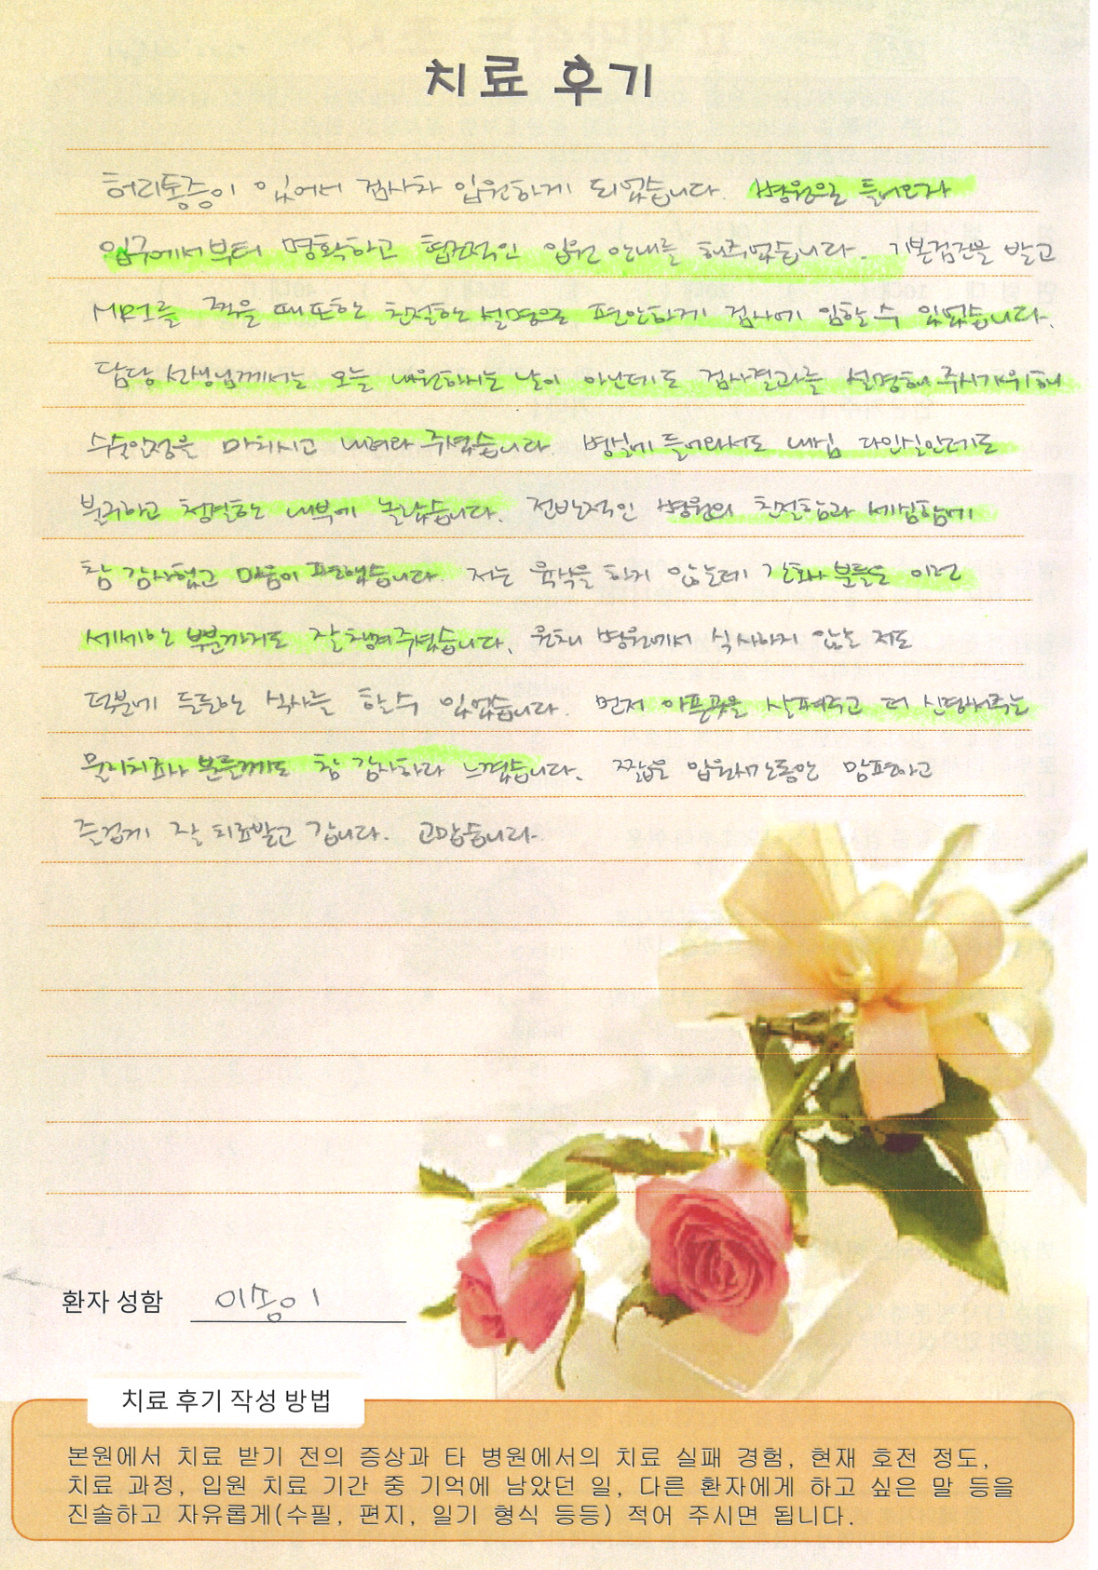 치료 후기
허리통증이 있어서 검사차 입원하게 되었습니다. 병원으로 들어오자
입구에서부터 명확하고 협조적인 입원 안내를 해주었습니다. 기본검진을 받고
MRI를 찍을 때 또한 친절한 설명으로 편안하게 검사에 임할 수 있었습니다.
담당 선생님께서는 오늘 내원하시는 날이 아닌데도 검사결과를 설명해 주시기위해
수술일정을 마치시고 내려와 주셨습니다. 병실에 들어와서도 내심 다인실인데도
불구하고 청결한 내부에 놀랐습니다. 전반적인 병원의 친절함과 세심함에
참 감사했고 마음이 편했습니다. 저는 육식을 하지 않는데 간호사 분들은 이런
세세한 부분까지도 잘 챙겨주셨습니다. 원래 병원에서 식사하지 않는 저도
덕분에 든든한 식사를 할 수 있었습니다. 먼저 아픈곳을 살펴주고 더 신경써주는
물리치료사 분들께도 참 감사하다 느꼈습니다. 짧은 입원시간동안 맘편하고
즐겁게 잘 치료받고 갑니다. 고맙습니다.
환자 성함 이송이
치료 후기 작성 방법
본원에서 치료 받기 전의 증상과 타 병원에서의 치료 실패 경험, 현재 호전 정도,
치료 과정, 입원 치료 기간 중 기억에 남았던 일, 다른 환자에게 하고 싶은 말 등을
진솔하고 자유롭게(수필, 편지, 일기 형식 등등) 적어 주시면 됩니다.